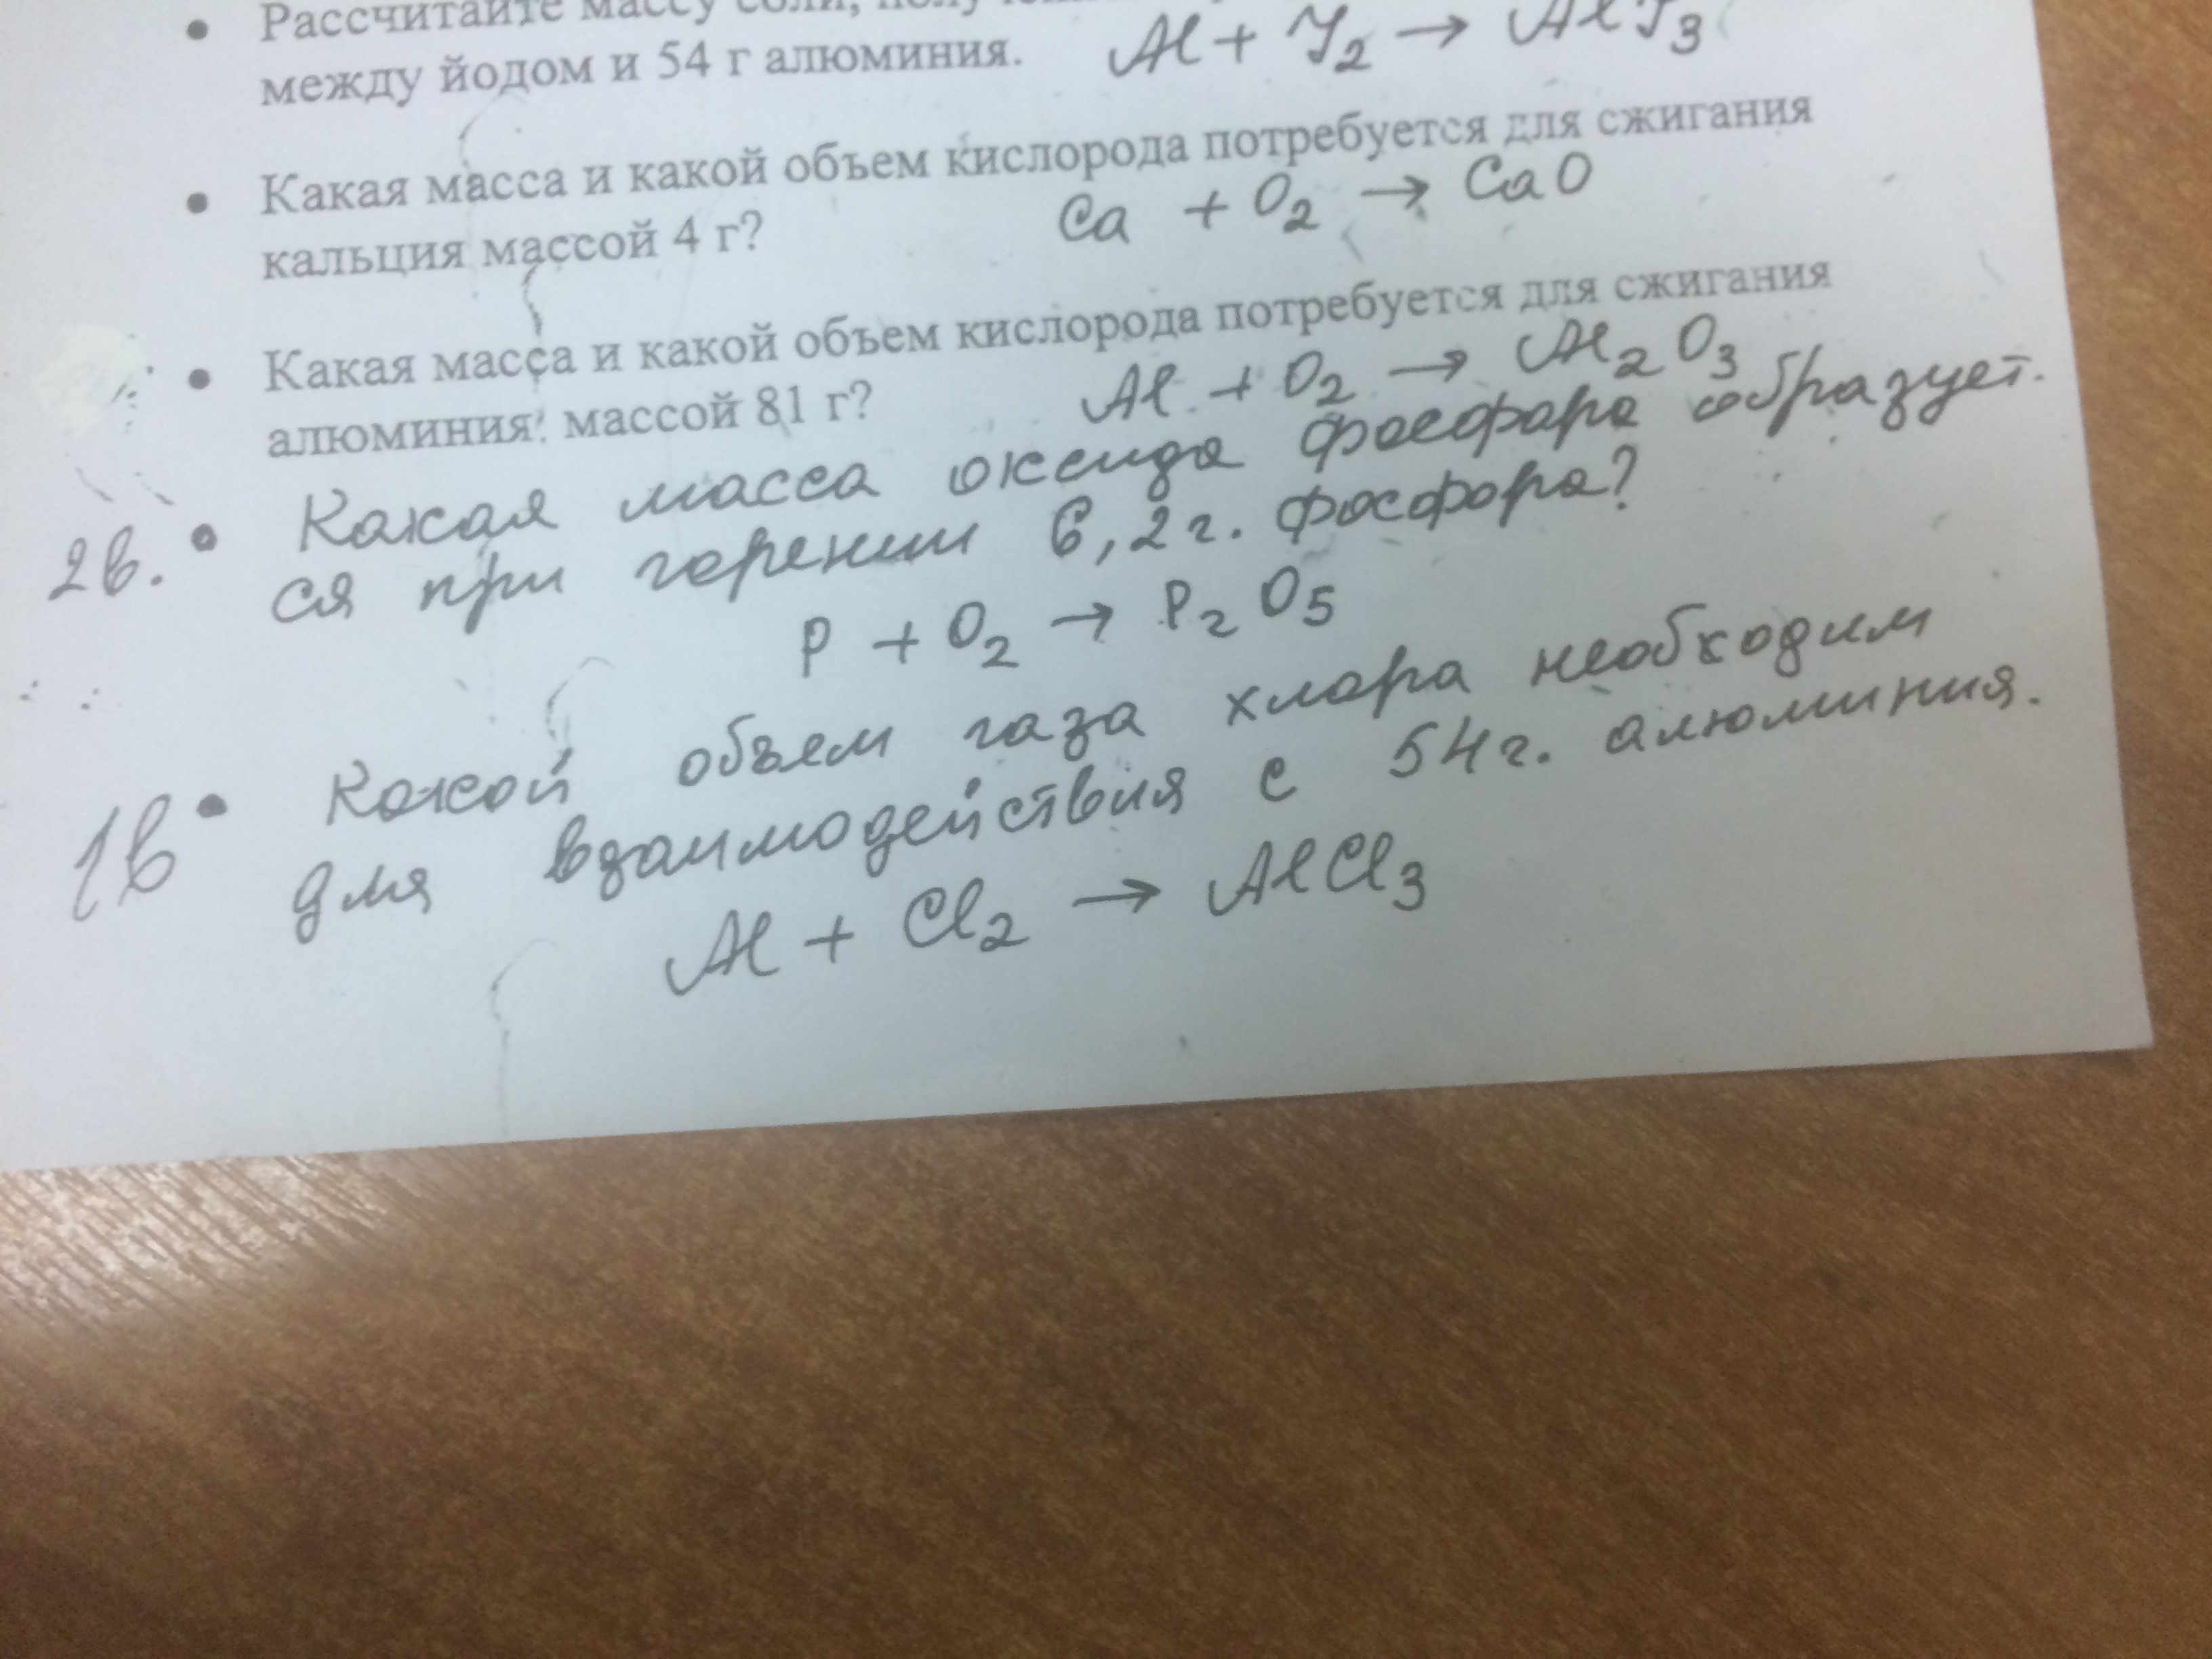 • Рассчитайте массу соли,
между йодом и 54 г алюминия. Al + J₂ → AlJ₃
• Какая масса и какой объем кислорода потребуется для сжигания
кальция массой 4 г? Ca + O₂ → CaO
• Какая масса и какой объем кислорода потребуется для сжигания
алюминия массой 81 г? Al + O₂ → Al₂O₃
2в. • Какая масса оксида фосфора образует-
ся при горении 6,2 г. фосфора?
P + O₂ → P₂O₅
1в • Какой объем газа хлора необходим
для взаимодействия с 54 г. алюминия.
Al + Cl₂ → AlCl₃